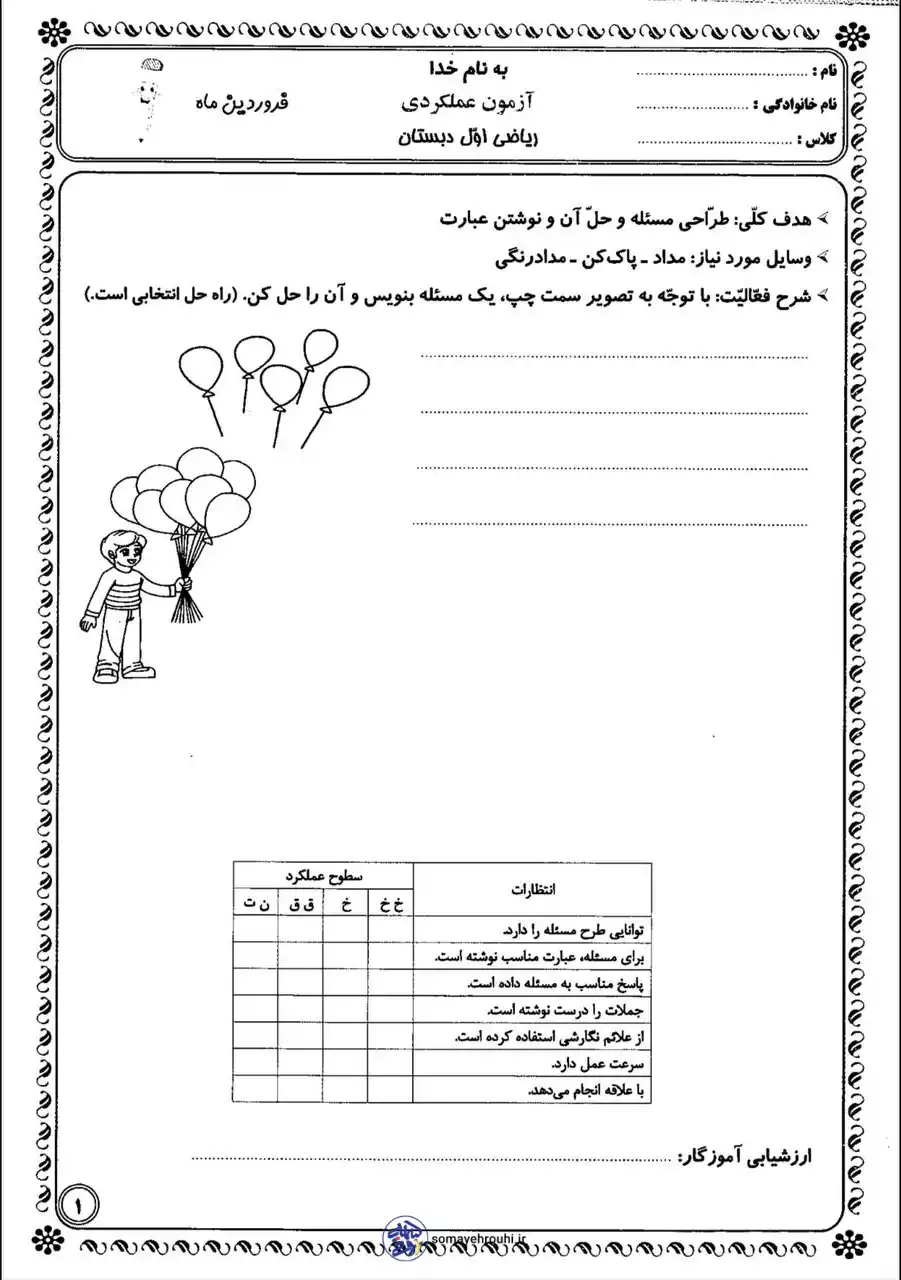 به نام خدا
نام : ........................................
آزمون عملکردی
فروردین ماه
نام خانوادگی : ..........................
ریاضی اوّل دبستان
کلاس : ....................................
هدف کلّی: طرّاحی مسئله و حلّ آن و نوشتن عبارت
وسایل مورد نیاز: مداد ـ پاک‌کن ـ مدادرنگی
شرح فعّالیّت: با توجّه به تصویر سمت چپ، یک مسئله بنویس و آن را حل کن. (راه حل انتخابی است.)
انتظارات
سطوح عملکرد
خ خ
خ
ق ق
ن ت
توانایی طرح مسئله را دارد.
برای مسئله، عبارت مناسب نوشته است.
پاسخ مناسب به مسئله داده است.
جملات را درست نوشته است.
از علائم نگارشی استفاده کرده است.
سرعت عمل دارد.
با علاقه انجام می‌دهد.
ارزشیابی آموزگار: ....................................................................
۱
somayehrouhi.ir